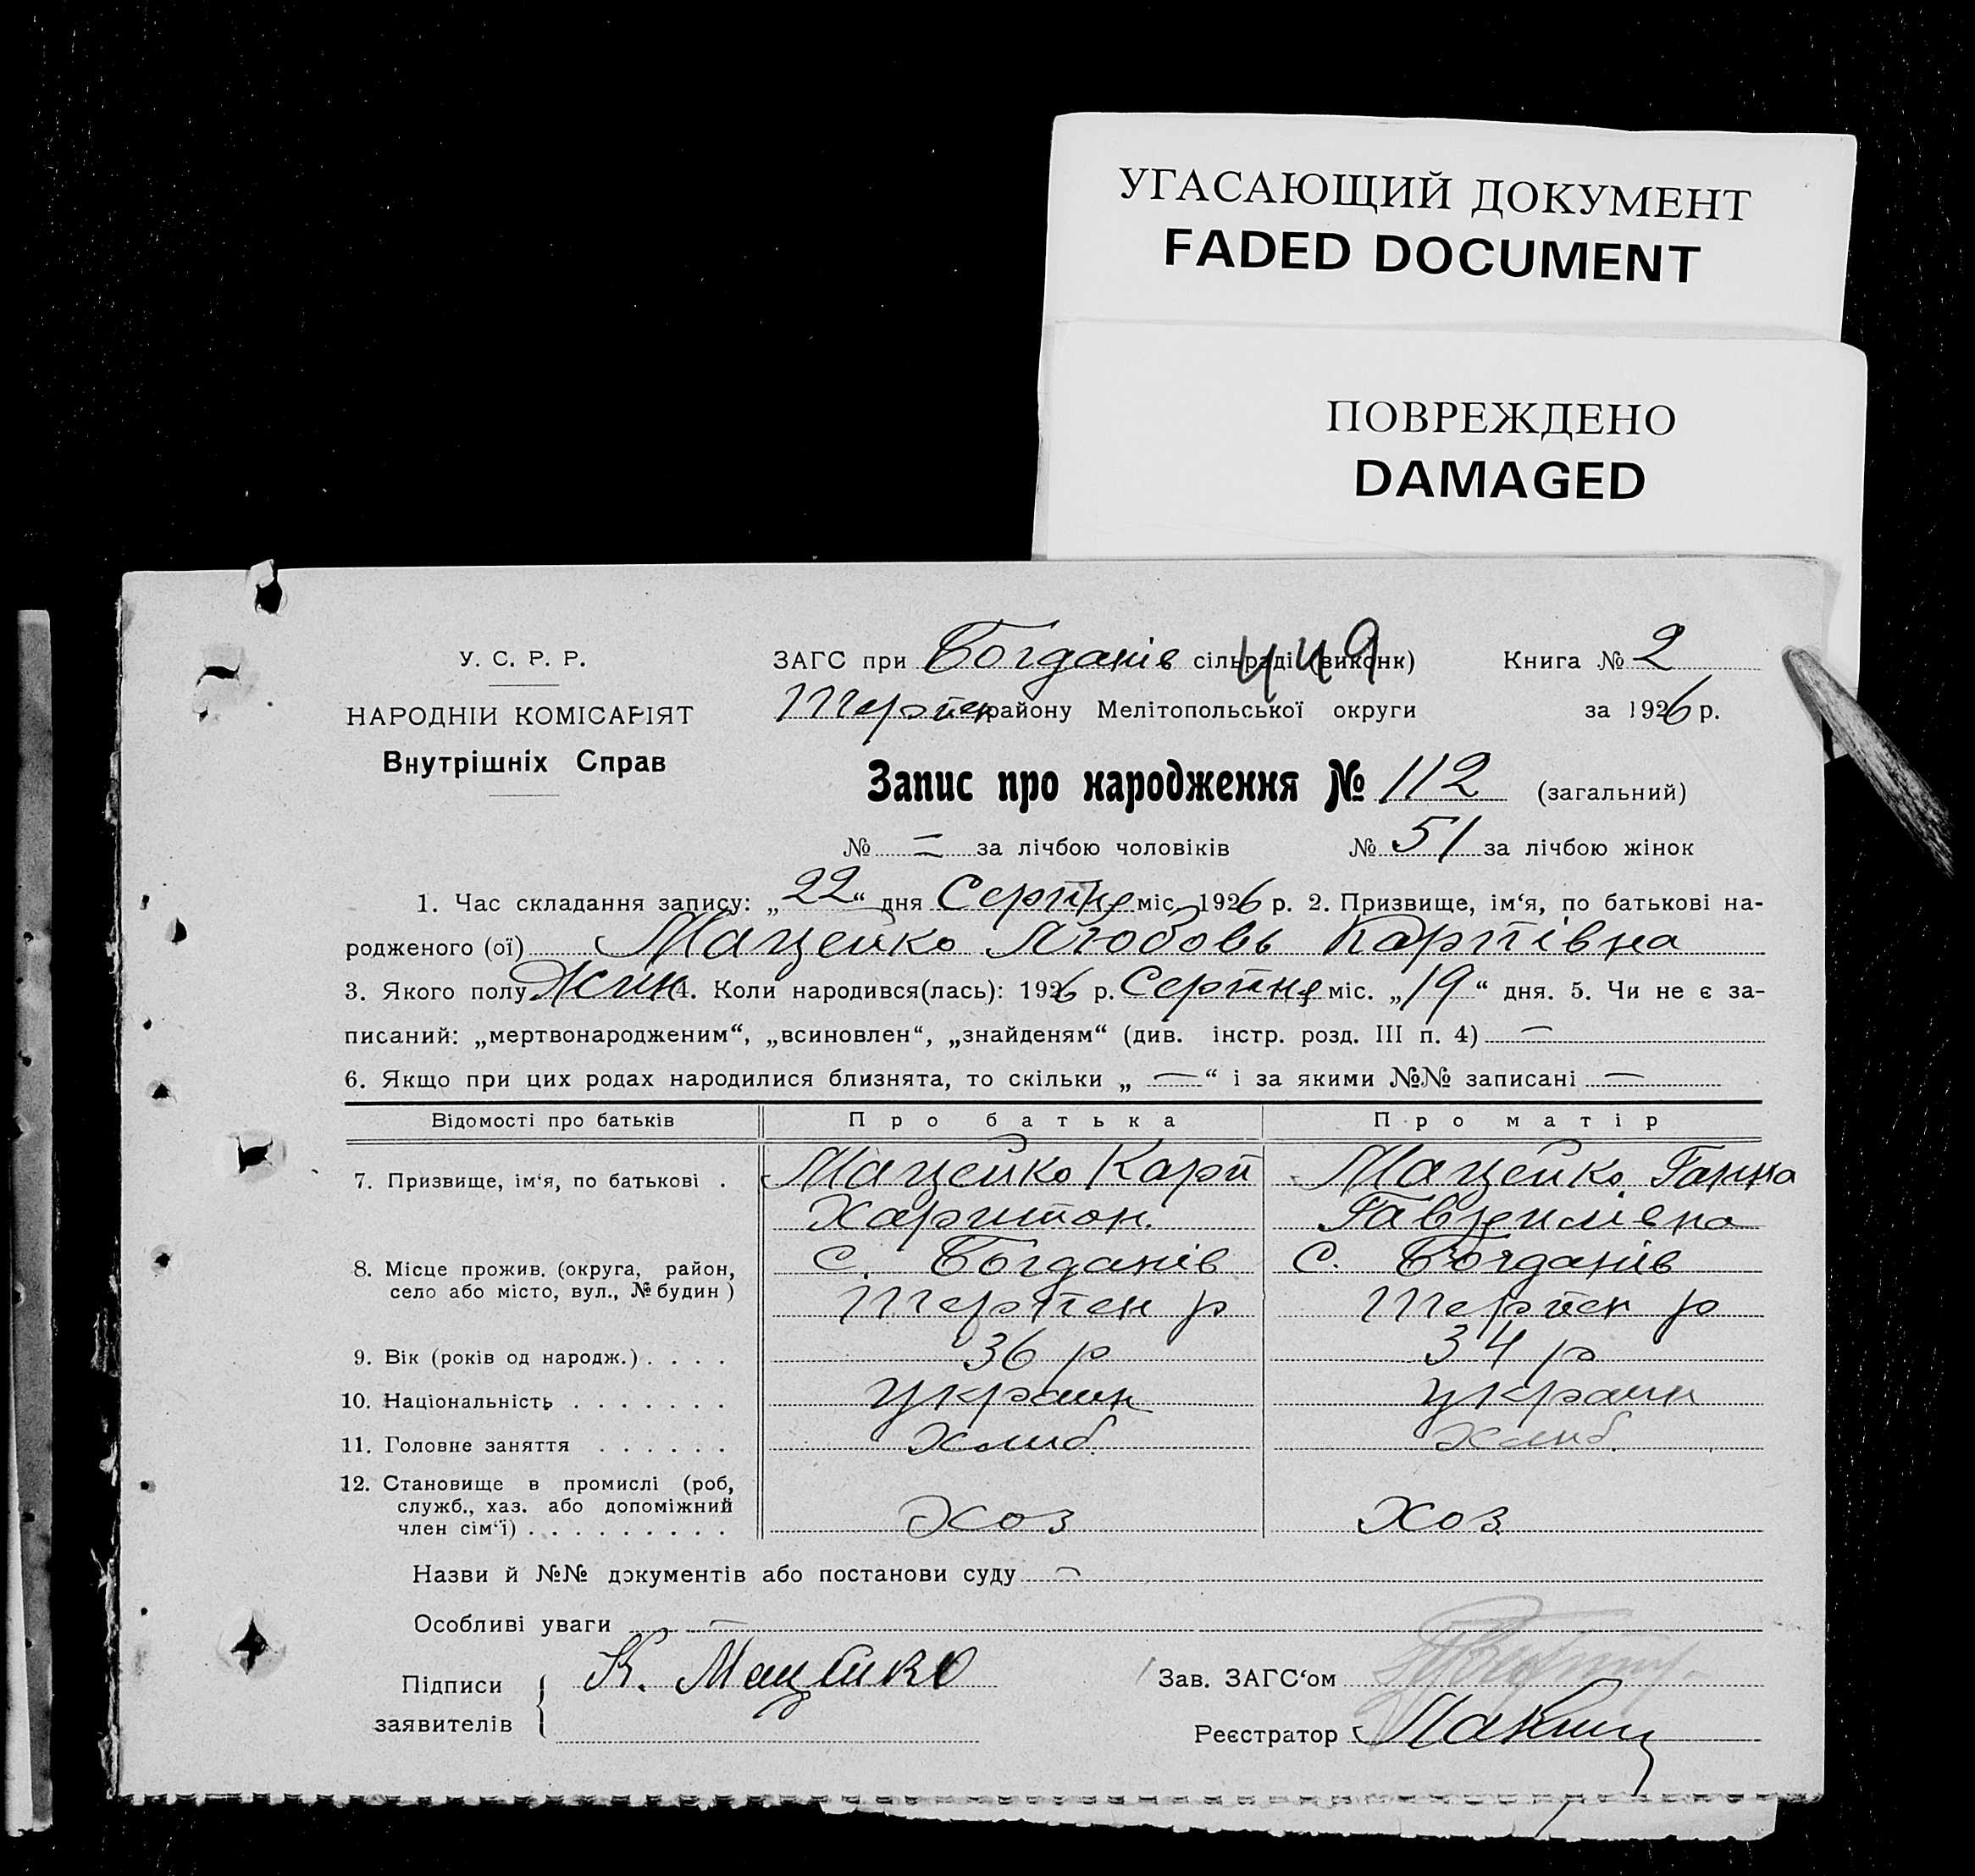 УГАСАЮЩИЙ ДОКУМЕНТ
FADED DOCUMENT
ПОВРЕЖДЕНО
DAMAGED
У. С. Р. Р.
НАРОДНІЙ КОМІСАРІЯТ
Внутрішніх Справ
ЗАГС при Богданів сільраді (виконк) Книга № 2
Терпен району Мелітопольської округи за 1926 р.
Запис про народження № 112 (загальний)
№ = за лічбою чоловіків № 51 за лічбою жінок
1. Час складання запису: „22“ дня Серпня міс. 1926 р. 2. Призвище, ім‘я, по батькові на-
родженого (ої) Мацейко Любовь Карпівна
3. Якого полу Жин 4. Коли народився(лась): 1926 р. Серпня міс. „19“ дня. 5. Чи не є за-
писаний: „мертвонародженим“, „всиновлен“, „знайденям“ (див. інстр. розд. III п. 4) —
6. Якщо при цих родах народилися близнята, то скільки „—“ і за якими №№ записані —
Відомості про батьків Про батька Про матір
7. Призвище, ім‘я, по батькові . Мацейко Карп Мацейко Ганна
Харитон. Гаврилівна
8. Місце прожив. (округа, район, с. Богданів с. Богданів
село або місто, вул., № будин) Терпен р Терпен р
9. Вік (років од народж.) . . . . 36 р 34 р
10. Національність . . . . . . . украин украин
11. Головне заняття . . . . . . хлиб. хлиб.
12. Становище в промислі (роб,
служб., хаз. або допоміжний
член сім‘ї) . . . . . . . . . хоз хоз.
Назви й №№ документів або постанови суду —
Особливі уваги —
Підписи К. Мацейко Зав. ЗАГС‘ом
заявителів Реєстратор